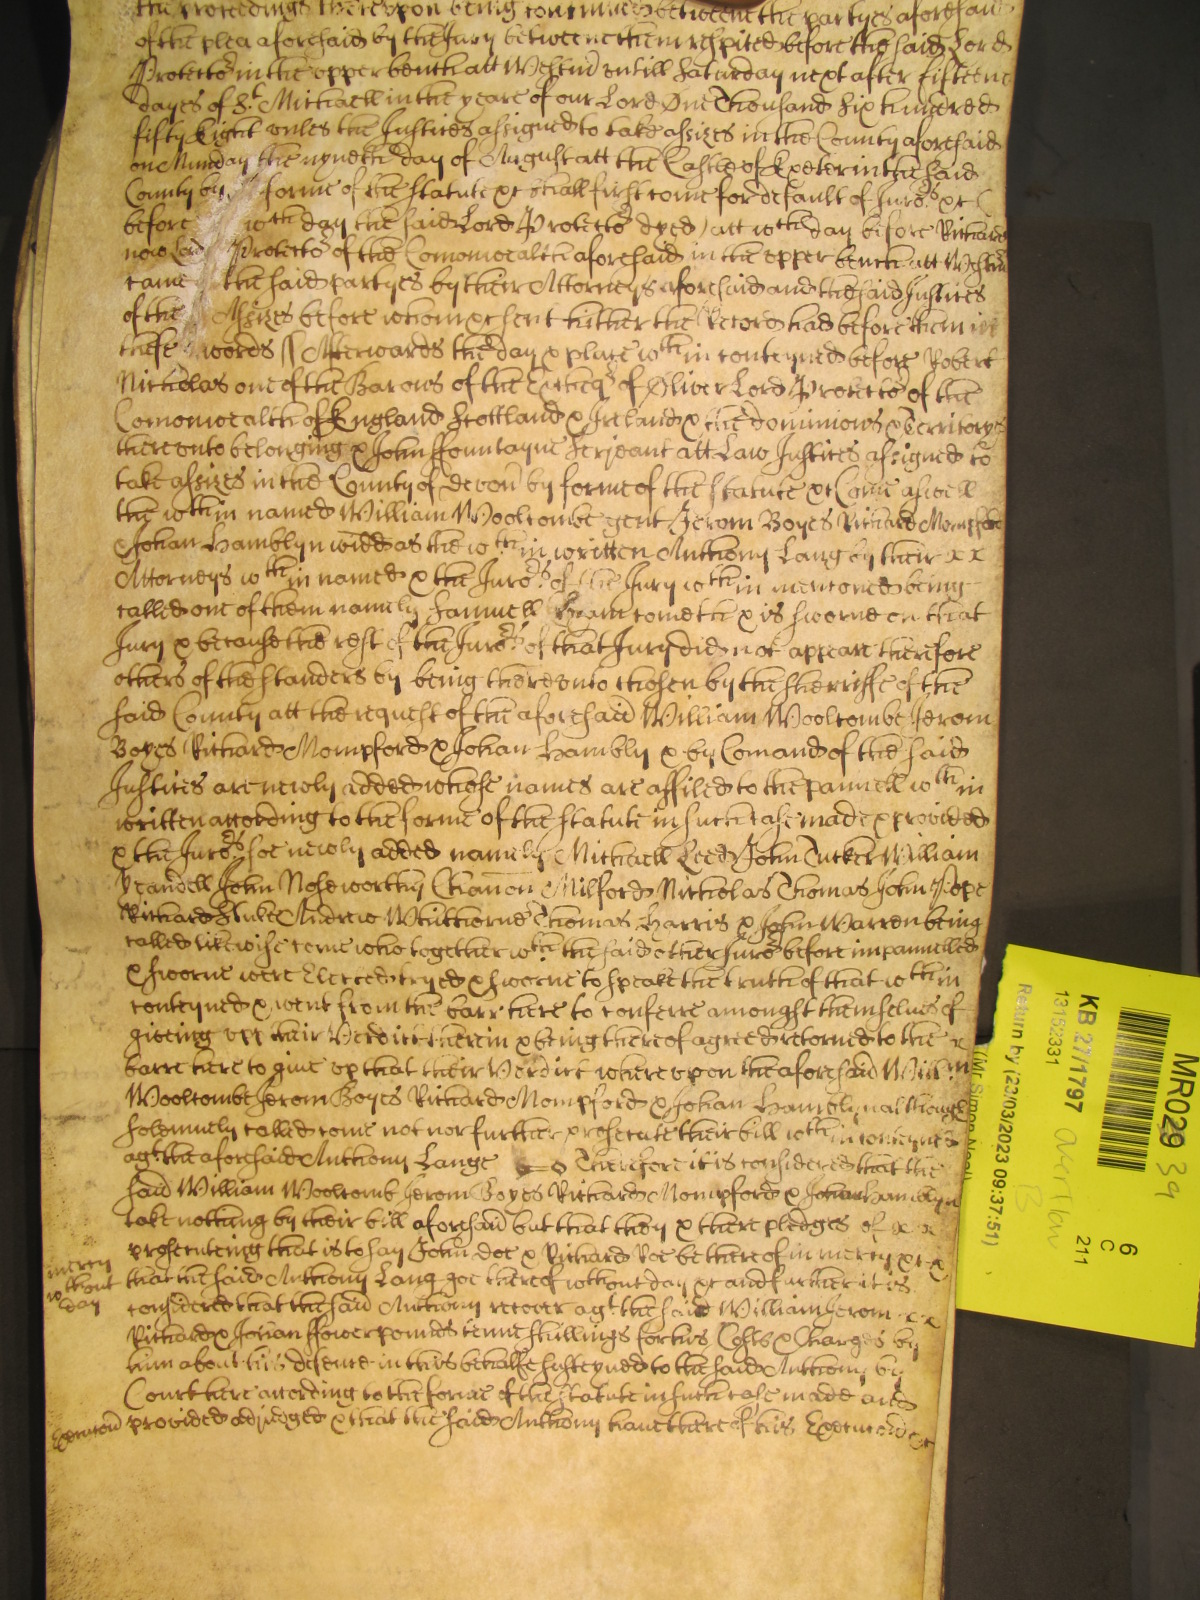 the proceedings thereupon being continued betweene the partyes aforesaid
of the plea aforesaid by the Jury betweene them respited before the said Lord
Protector in the upper bench att Westmr untill Saturday next after fifteene
dayes of St Michaell in the yeare of our Lord One Thousand Six hundred
fifty Eight unles the Justices assigned to take assizes in the County aforesaid
on Munday the nyneth day of August att the Castle of Exeter in the said
County by forme of the statute &c shall first come for default of Juro:rs &c
before wch day the said Lord Protector dyed / att wch day before Richard
now Lord Protector of the Comonwealth aforesaid in the upper bench att Westmr
came the said partyes by their Attorneys aforesaid and the said Justices
of the Assizes before whom &c sent hither the Record had before them in
these words // Afterwards the day & place wthin conteyned before Robert
Nicholas one of the Barons of the Excheqr of Oliver Lord Protector of the
Comonwealth of England Scottland & Ireland & the dominions & Territorys
thereunto belonging & John Fountayne Serjeant att Law Justices assigned to
take assizes in the County of Devon by forme of the statute &c Come aswell
the wthin named William Woolcombe gent Jerom Boyes Richard Mompford
& Johan Hamblyn widd as the wthin written Anthony Lang by their x x
Attorneys wthin named & the Juro:rs of the Jury wthin menconed being
called one of them namely Samuell cometh & is sworne on that
Jury & because the rest of the Juro:rs of that Jury did not appeare therefore
others of the standers by being thereunto chosen by the sherriffe of the
said County att the request of the aforesaid William Woolcombe Jerom
Boyes Richard Mompford & Johan Hambly & by Comand of the said
Justices are newly added whose names are affiled to the pannell wthin
written according to the forme of the statute in such case made & provided
& the Juro:rs soe newly added namely Michaell Leed John Tucker William
Yeandell John Noseworthy Milford Nicholas Thomas John Pope
Richard Andrew Whithorne Thomas Harris & John Warren being
called likewise come who together wth the said other Juror before impannelled
& sworne were Elected tryed & sworne to speake the truth of that wthin
conteyned & went from the barr here to conferre amongst themselves of
giveing upp their Verdict therein & being thereof agreed returned to the x
barre here to give up that their Verdict whereupon the aforesaid William
Woolcombe Jerom Boyes Richard Mompford & Johan Hamblyn although
solemnely called come not nor further prosecute their bill wthin conteyned
agt the aforesaid Anthony Lange Therefore it is considered that the
said William Woolcomb Jerom Boyes Richard Mompford & Johan Hamblyn
take nothing by their bill aforesaid but that they & there pledges of x x
prosecuteing that is to say John doe & Richard Roe be thereof in mercy &c x
mercy
that the said Anthony Lang goe thereof wthout day &c and further it is
wthout
day
considered that the said Anthony recover agt the said William Jerom x x
Richard & Johan ffower pounds tenne shillings for his Costs & Charges by
him about his defence in this behalfe susteyned to the said Anthony by
Court here according to the forme of the statute in such case made and
Execucon provided adjudged & that the said Anthony have thereof his Execucon &c
MR029 39
6
C
211
KB 27/1797
13152331
Return by (23/03/2023 09:37:51)